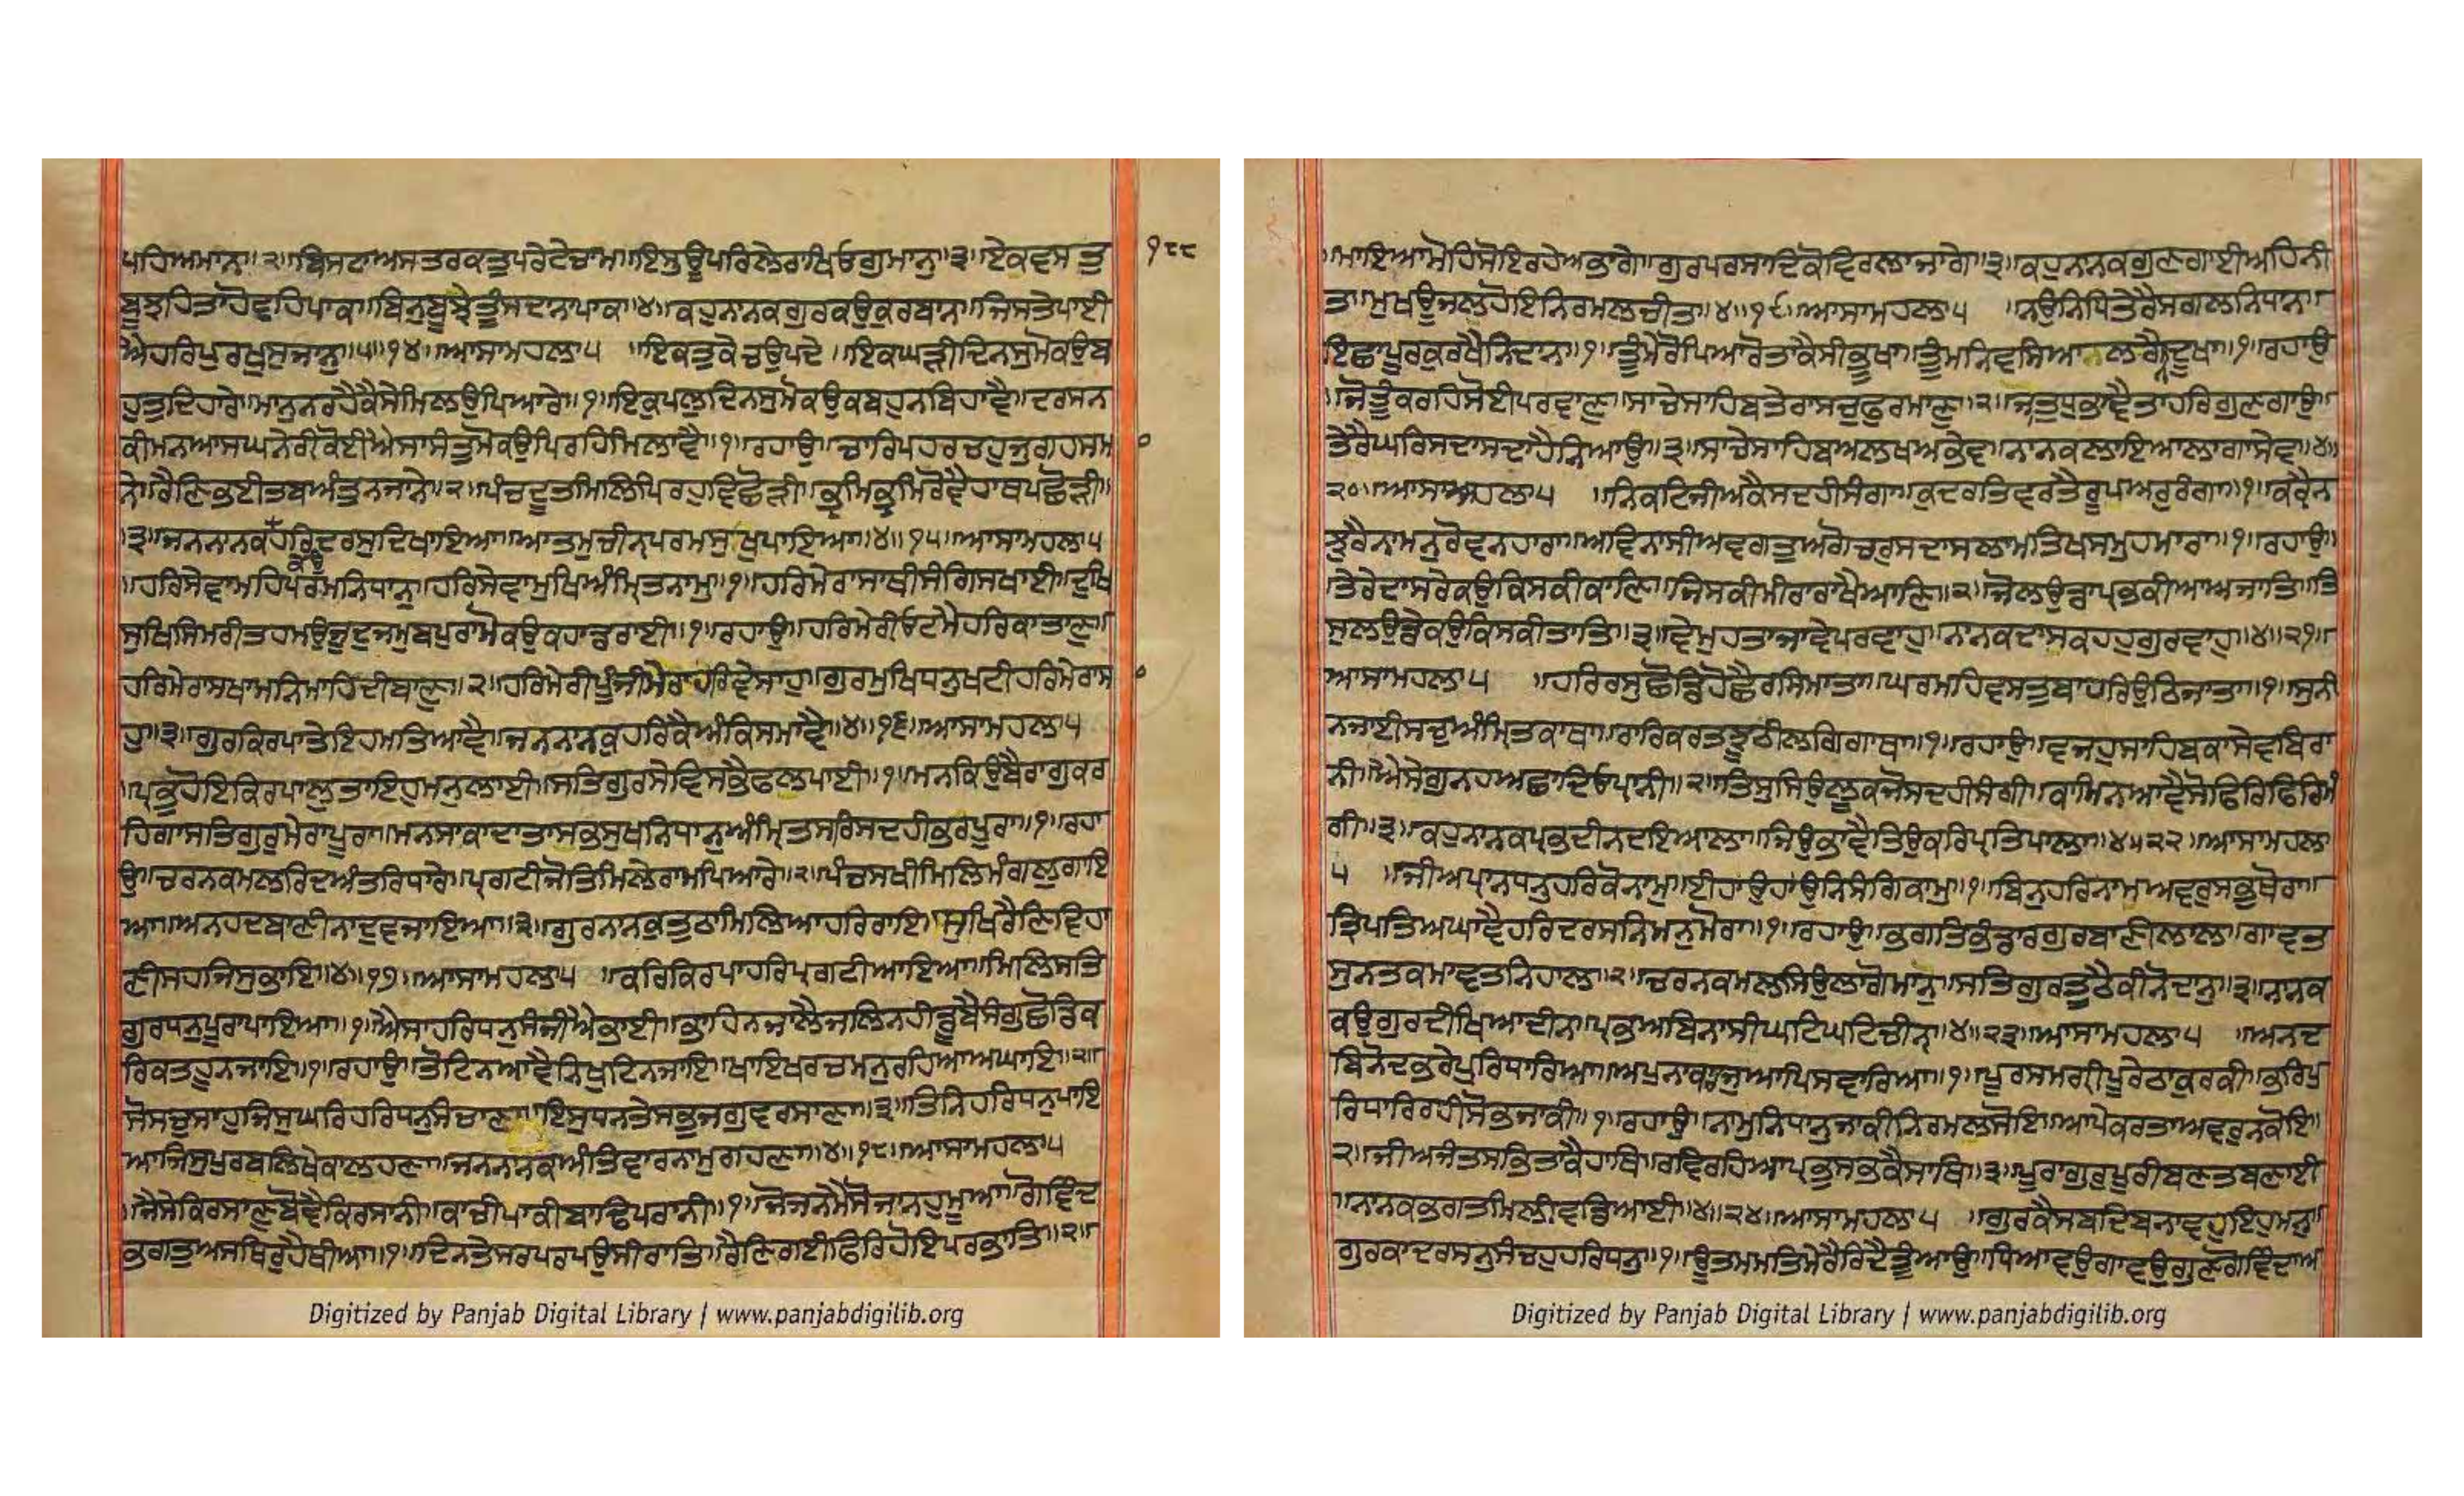 ਪਹਿਅਮਾਨਾ॥੨॥ਬਿਸਟਾਅਸਤਰਕਤੁਪਰੇਟੇਚਾਮ॥ਇਸੁਊਪਰਿਲੇਰਾਖਿਓਗੁਮਾਨੁ॥੩॥ਏਕਵਸਤੁ
ਬੂਝਹਿਤਾਹੋਵਹਿਪਾਕ॥ਬਿਨੁਬੂਝੇਤੂੰਸਦਨਾਪਾਕ॥੪॥ਕਹੁਨਾਨਕਗੁਰਕਉਕੁਰਬਾਨ॥ਜਿਸਤੇਪਾਈ
ਐਹਰਿਪੁਰਖੁਸੁਜਾਨੁ॥੫॥੧੪॥ਆਸਾਮਹਲਾ੫ ॥ਇਕਤੁਕੇਚਉਪਦੇ॥ਇਕਘੜੀਦਿਨਸੁਮੋਕਉਬ
ਹੁਤੁਦਿਹਾਰੇ॥ਮਨੁਨਰਹੈਕੈਸੇਮਿਲਉਪਿਆਰੇ॥੧॥ਇਕੁਪਲੁਦਿਨਸੁਮੋਕਉਕਬਹੁਨਬਿਹਾਵੈ॥ਦਰਸਨ
ਕੀਮਨਿਆਸਘਨੇਰੀਕੋਈਐਸਾਸੰਤੁਮੋਕਉਪਿਰਹਿਮਿਲਾਵੈ॥੧॥ਰਹਾਉ॥ਚਾਰਿਪਹਰਚਹੁਜੁਗਹਸਮ
ਨੇ॥ਰੈਣਿਭਈਤਬਅੰਤੁਨਜਾਨੇ॥੨॥ਪੰਚਦੂਤਮਿਲਿਪਿਰਹੁਵਿਛੋੜੀ॥ਭ੍ਰਮਿਭ੍ਰਮਿਰੋਵੈਹਾਥਪਛੋੜੀ॥
॥੩॥ਜਨਨਾਨਕਹਰਿਦਰਸੁਦਿਖਾਇਆ॥ਆਤਮੁਚੀਨ੍ਹਿਪਰਮਸੁਖੁਪਾਇਆ॥੪॥੧੫॥ਆਸਾਮਹਲਾ੫
॥ਹਰਿਸੇਵਾਮਹਿਪਰਮਨਿਧਾਨੁ॥ਹਰਿਸੇਵਾਮੁਖਿਅੰਮ੍ਰਿਤਨਾਮੁ॥੧॥ਹਰਿਮੇਰਾਸਾਥੀਸੰਗਿਸਖਾਈ॥ਦੁਖਿ
ਸੁਖਿਸਿਮਰੀਤਹਮਉਜੂਦੁਜਮੁਬਪੁਰਾਮੋਕਉਕਹਾਡਰਾਈ॥੧॥ਰਹਾਉ॥ਹਰਿਮੇਰੀਓਟਮੈਹਰਿਕਾਤਾਣੁ॥
ਹਰਿਮੇਰਾਸਖਾਮਨਿਮਾਹਿਦੀਬਾਣੁ॥੨॥ਹਰਿਮੇਰੀਪੂੰਜੀਮੇਰਾਹਰਿਵੇਸਾਹੁ॥ਗੁਰਮੁਖਿਧਨੁਖਟੀਹਰਿਮੇਰਾਸਾ
ਹੁ॥੩॥ਗੁਰਕਿਰਪਾਤੇਇਹਮਤਿਆਵੈ॥ਜਨਨਾਨਕੁਹਰਿਕੈਅੰਕਿਸਮਾਵੈ॥੪॥੧੬॥ਆਸਾਮਹਲਾ੫
॥ਪ੍ਰਭੁਹੋਇਕਿਰਪਾਲੁਤਾਇਹੁਮਨੁਲਾਈ॥ਸਤਿਗੁਰਸੇਵਿਸਭੈਫਲਪਾਈ॥੧॥ਮਨਕਿਉਬੈਰਾਗੁਕਰ
ਹਿਗਾਸਤਿਗੁਰੁਮੇਰਾਪੂਰਾ॥ਮਨਸਾਕਾਦਾਤਾਸਭਸੁਖਨਿਧਾਨੁਅੰਮ੍ਰਿਤਸਰਿਸਦਹੀਭਰਪੂਰਾ॥੧॥ਰਹਾ
ਉ॥ਚਰਨਕਮਲਰਿਦਅੰਤਰਿਧਾਰੇ॥ਪ੍ਰਗਟੀਜੋਤਿਮਿਲੇਰਾਮਪਿਆਰੇ॥੨॥ਪੰਚਸਖੀਮਿਲਿਮੰਗਲੁਗਾਇ
ਆ॥ਅਨਹਦਬਾਣੀਨਾਦੁਵਜਾਇਆ॥੩॥ਗੁਰਨਾਨਕੁਤੁਠਾਮਿਲਿਆਹਰਿਰਾਇ॥ਸੁਖਿਰੈਣਿਵਿਹਾ
ਣੀਸਹਜਿਸੁਭਾਇ॥੪॥੧੭॥ਆਸਾਮਹਲਾ੫ ॥ਕਰਿਕਿਰਪਾਹਰਿਪ੍ਰਗਟੀਆਇਆ॥ਮਿਲਿਸਤਿ
ਗੁਰਧਨੁਪੂਰਾਪਾਇਆ॥੧॥ਐਸਾਹਰਿਧਨੁਸੰਜੀਐਭਾਈ॥ਭਾਹਿਨਜਾਲੈਜਲਿਨਹੀਡੂਬੈਸੰਗੁਛੋਡਿਕ
ਰਿਕਤਹੁਨਜਾਇ॥੧॥ਰਹਾਉ॥ਤੋਟਿਨਆਵੈਨਿਖੁਟਿਨਜਾਇ॥ਖਾਇਖਰਚਮਨੁਰਹਿਆਅਘਾਇ॥੨॥
ਸੋਸਚੁਸਾਹੁਜਿਸੁਘਰਿਹਰਿਧਨੁਸੰਚਾਣਾ॥ਇਸੁਧਨਤੇਸਭੁਜਗੁਵਰਸਾਣਾ॥੩॥ਤਿਨਿਹਰਿਧਨੁਪਾਇ
ਆਜਿਸੁਪੁਰਬਲਿਖੇਕਾਲਹਣਾ॥ਜਨਨਾਨਕਅੰਤਿਵਾਰਨਾਮੁਗਹਣਾ॥੪॥੧੮॥ਆਸਾਮਹਲਾ੫
॥ਜੈਸੇਕਿਰਸਾਣੁਬੋਵੈਕਿਰਸਾਨੀ॥ਕਾਚੀਪਾਕੀਬਾਢਿਪਰਾਨੀ॥੧॥ਜੋਜਨਮੈਸੋਜਾਨਹੁਮੂਆ॥ਗੋਵਿੰਦ
ਭਗਤੁਅਸਥਿਰੁਹੈਥੀਆ॥੧॥ਦਿਨਤੇਸਰਪਰਪਉਸੀਰਾਤਿ॥ਰੈਣਿਗਈਫਿਰਿਹੋਇਪਰਭਾਤਿ॥੨॥
੧੮੮
॥ਮਾਇਆਮੋਹਿਸੋਇਰਹੇਅਭਾਗੇ॥ਗੁਰਪਰਸਾਦਿਕੋਵਿਰਲਾਜਾਗੇ॥੩॥ਕਹੁਨਾਨਕਗੁਣਗਾਈਅਹਿਨੀ
ਤ॥ਮੁਖਊਜਲਹੋਇਨਿਰਮਲਚੀਤ॥੪॥੧੯॥ਆਸਾਮਹਲਾ੫ ॥ਨਉਨਿਧਿਤੇਰੈਸਗਲਨਿਧਾਨ॥
ਇਛਾਪੂਰਕੁਰਖੈਨਿਦਾਨ॥੧॥ਤੂੰਮੇਰੋਪਿਆਰੋਤਾਕੈਸੀਭੂਖਾ॥ਤੂੰਮਨਿਵਸਿਆਲਗੈਨਦੂਖਾ॥੧॥ਰਹਾਉ
॥ਜੋਤੂੰਕਰਹਿਸੋਈਪਰਵਾਣੁ॥ਸਾਚੇਸਾਹਿਬਤੇਰਾਸਚੁਫੁਰਮਾਣੁ॥੨॥ਜਾਤੁਧੁਭਾਵੈਤਾਹਰਿਗੁਣਗਾਉ॥
ਤੇਰੈਘਰਿਸਦਾਸਦਾਹੈਨਿਆਉ॥੩॥ਸਾਚੇਸਾਹਿਬਅਲਖਅਭੇਵ॥ਨਾਨਕਲਾਇਆਲਾਗਾਸੇਵ॥੪॥
੨੦॥ਆਸਾਮਹਲਾ੫ ॥ਨਿਕਟਿਜੀਅਕੈਸਦਹੀਸੰਗਾ॥ਕੁਦਰਤਿਵਰਤੈਰੂਪਅਰੁਰੰਗਾ॥੧॥ਕਰ੍ਹੈਨ
ਝੁਰੈਨਾਮਨੁਰੋਵਨਹਾਰਾ॥ਅਵਿਨਾਸੀਅਵਗਤੁਅਗੋਚਰੁਸਦਾਸਲਾਮਤਿਖਸਮੁਹਮਾਰਾ॥੧॥ਰਹਾਉ॥
ਤੇਰੇਦਾਸਰੇਕਉਕਿਸਕੀਕਾਣਿ॥ਜਿਸਕੀਮੀਰਾਰਾਖੈਆਣਿ॥੨॥ਜੋਲਉਡਾਪ੍ਰਭਕੀਆਅਜਾਤਿ॥ਤਿ
ਸੁਲਉਡੇਕਉਕਿਸਕੀਤਾਤਿ॥੩॥ਵੇਮੁਹਤਾਜਾਵੇਪਰਵਾਹੁ॥ਨਾਨਕਦਾਸਕਹਹੁਗੁਰਵਾਹੁ॥੪॥੨੧॥
ਆਸਾਮਹਲਾ੫ ॥ਹਰਿਰਸੁਛੋਡਿਹੋਛੈਰਸਿਮਾਤਾ॥ਘਰਮਹਿਵਸਤੁਬਾਹਰਿਉਠਿਜਾਤਾ॥੧॥ਸੁਨੀ
ਨਜਾਈਸਚੁਅੰਮ੍ਰਿਤਕਾਥਾ॥ਰਾਰਿਕਰਤਝੂਠੀਲਗਿਗਾਥਾ॥੧॥ਰਹਾਉ॥ਵਜਹੁਸਾਹਿਬਕਾਸੇਵਬਿਰਾ
ਨੀ॥ਐਸੇਗੁਨਹਅਛਾਦਿਓਪ੍ਰਾਨੀ॥੨॥ਤਿਸੁਸਿਉਲੂਕਜੋਸਦਹੀਸੰਗੀ॥ਕਾਮਿਨਆਵੈਸੋਫਿਰਿਫਿਰਿਮੰ
ਗੀ॥੩॥ਕਹੁਨਾਨਕਪ੍ਰਭਦੀਨਦਇਆਲਾ॥ਜਿਉਭਾਵੈਤਿਉਕਰਿਪ੍ਰਤਿਪਾਲਾ॥੪॥੨੨॥ਆਸਾਮਹਲਾ
੫ ॥ਜੀਅਪ੍ਰਾਨਧਨੁਹਰਿਕੋਨਾਮੁ॥ਈਹਾਊਹਾਂਉਨਿਸੰਗਿਕਾਮੁ॥੧॥ਬਿਨੁਹਰਿਨਾਮਅਵਰੁਸਭੁਥੋਰਾ॥
ਤ੍ਰਿਪਤਿਅਘਾਵੈਹਰਿਦਰਸਨਿਮਨੁਮੋਰਾ॥੧॥ਰਹਾਉ॥ਭਗਤਿਭੰਡਾਰਗੁਰਬਾਣੀਲਾਲ॥ਗਾਵਤ
ਸੁਨਤਕਮਾਵਤਨਿਹਾਲ॥੨॥ਚਰਨਕਮਲਸਿਉਲਾਗੋਮਾਨੁ॥ਸਤਿਗੁਰਤੂਠੈਕੀਨੋਦਾਨੁ॥੩॥ਨਾਨਕ
ਕਉਗੁਰਦੀਖਿਆਦੀਨ॥ਪ੍ਰਭਅਬਿਨਾਸੀਘਟਿਘਟਿਚੀਨ੍ਹ॥੪॥੨੩॥ਆਸਾਮਹਲਾ੫ ॥ਅਨਦ
ਬਿਨੋਦਭਰੇਪੁਰਿਧਾਰਿਆ॥ਅਪੁਨਾਕਾਰਜੁਆਪਿਸਵਾਰਿਆ॥੧॥ਪੂਰਸਮਗ੍ਰੀਪੂਰੇਠਾਕੁਰਕੀ॥ਭਰਿਪੁ
ਰਿਧਾਰਿਰਹੀਸੋਭਜਾਕੀ॥੧॥ਰਹਾਉ॥ਨਾਮੁਨਿਧਾਨੁਜਾਕੀਨਿਰਮਲਸੋਇ॥ਆਪੇਕਰਤਾਅਵਰੁਨਕੋਇ॥
੨॥ਜੀਅਜੰਤਸਭਿਤਾਕੈਹਾਥਿ॥ਰਵਿਰਹਿਆਪ੍ਰਭੁਸਭਕੈਸਾਥਿ॥੩॥ਪੂਰਾਗੁਰੁਪੂਰੀਬਣਤਬਣਾਈ
॥ਨਾਨਕਭਗਤਮਿਲੀਵਡਿਆਈ॥੪॥੨੪॥ਆਸਾਮਹਲਾ੫ ॥ਗੁਰਕੈਸਬਦਿਬਨਾਵਹੁਇਹੁਮਨੁ॥
ਗੁਰਕਾਦਰਸਨੁਸੰਚਹੁਹਰਿਧਨੁ॥੧॥ਊਤਮਮਤਿਮੇਰੈਰਿਦੈਤੂੰਆਉ॥ਧਿਆਵਉਗਾਵਉਗੁਣਗੋਵਿੰਦਾਅ
Digitized by Panjab Digital Library | www.panjabdigilib.org
Digitized by Panjab Digital Library | www.panjabdigilib.org